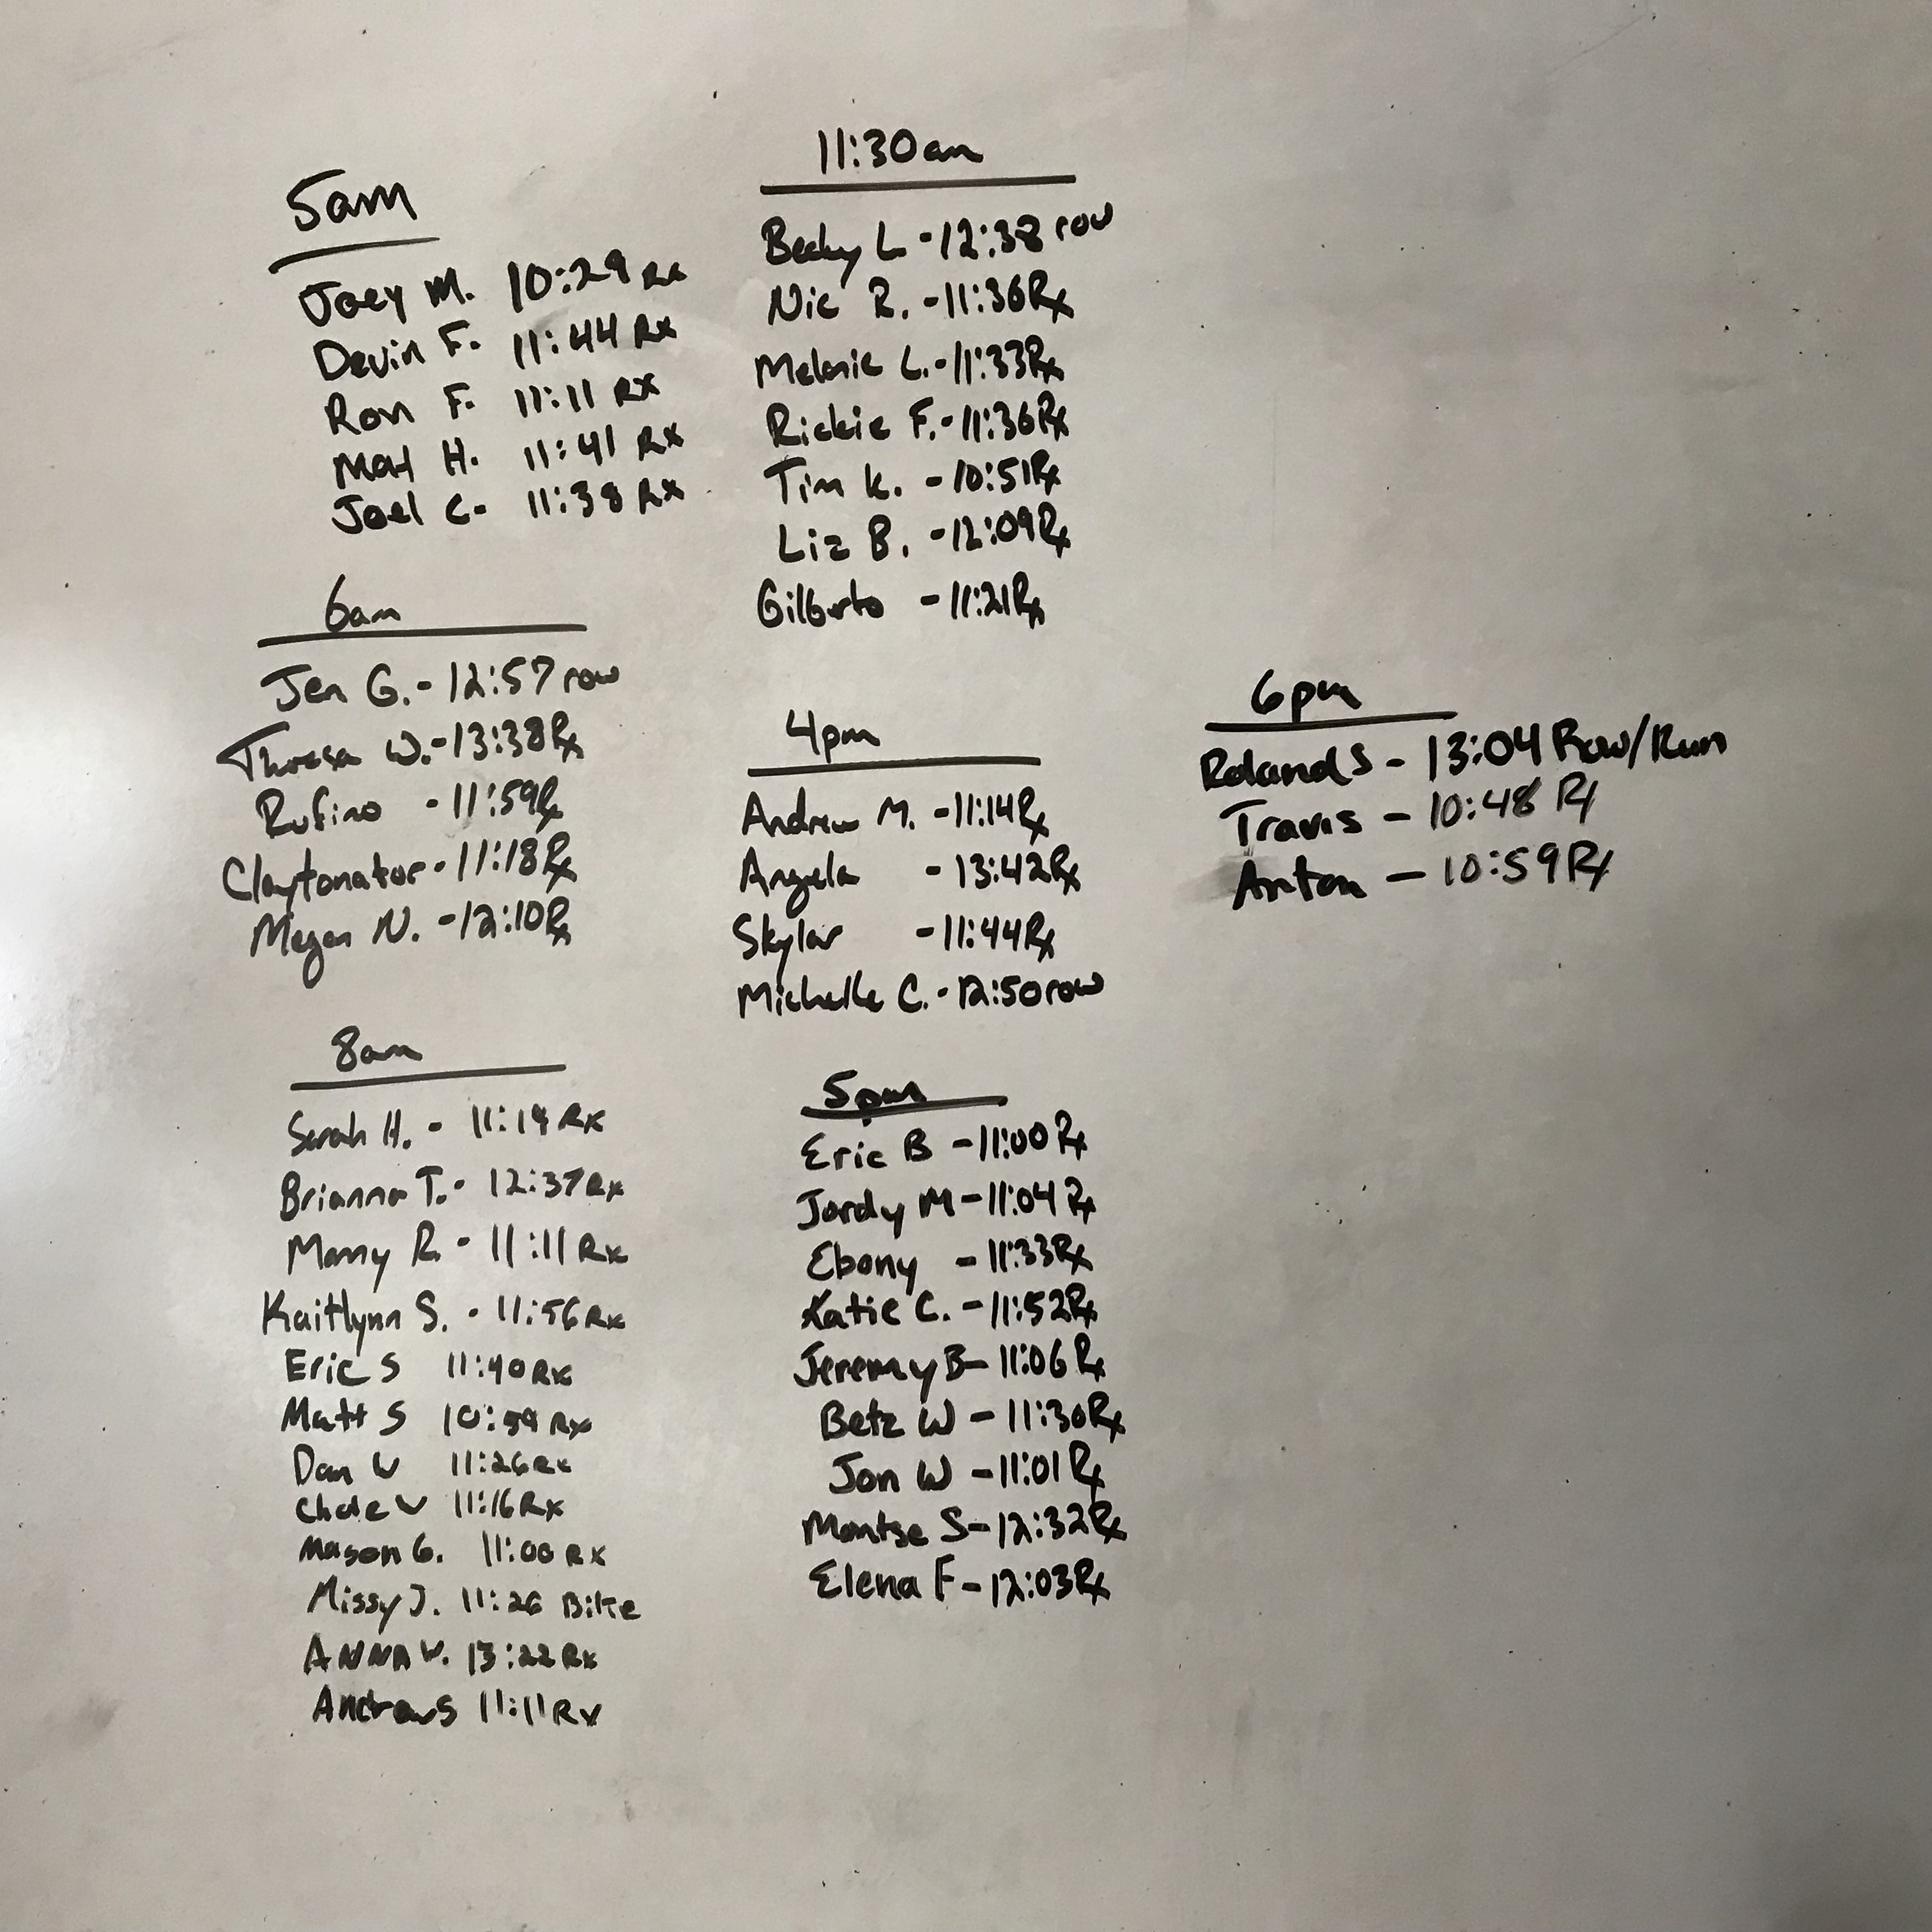 5am
Joey M. 10:29 Rx
Devin F. 11:44 Rx
Ron F. 11:11 Rx
Mat H. 11:41 Rx
Joel C. 11:38 Rx
6am
Jen G. - 12:57 row
Theresa W. - 13:38 Rx
Rufino - 11:59 Rx
Claytonator - 11:18 Rx
Megan N. - 12:10 Rx
8am
Sarah H. - 11:19 Rx
Brianna T. - 12:37 Rx
Manny R. - 11:11 Rx
Kaitlynn S. - 11:56 Rx
Eric S 11:40 Rx
Matt S 10:59 Rx
Dan V 11:26 Rx
Chloe V 11:16 Rx
Mason G. 11:00 Rx
Missy J. 11:26 Bike
ANNA V. 13:22 Rx
Andrew S 11:11 Rx
11:30am
Becky L - 12:38 row
Nic R. - 11:36 Rx
Melanie L. - 11:33 Rx
Rickie F. - 11:36 Rx
Tim K. - 10:51 Rx
Liz B. - 12:09 Rx
Gilberto - 11:21 Rx
4pm
Andrew M. - 11:14 Rx
Angela - 13:42 Rx
Skylar - 11:44 Rx
Michelle C. - 12:50 row
5pm
Eric B - 11:00 Rx
Jordy M - 11:04 Rx
Ebony - 11:33 Rx
Katie C. - 11:52 Rx
Jeremy B - 11:06 Rx
Betz W - 11:30 Rx
Jon W - 11:01 Rx
Montse S - 12:32 Rx
Elena F - 12:03 Rx
6pm
Roland S - 13:04 Row/Run
Travis - 10:48 Rx
Anton - 10:59 Rx